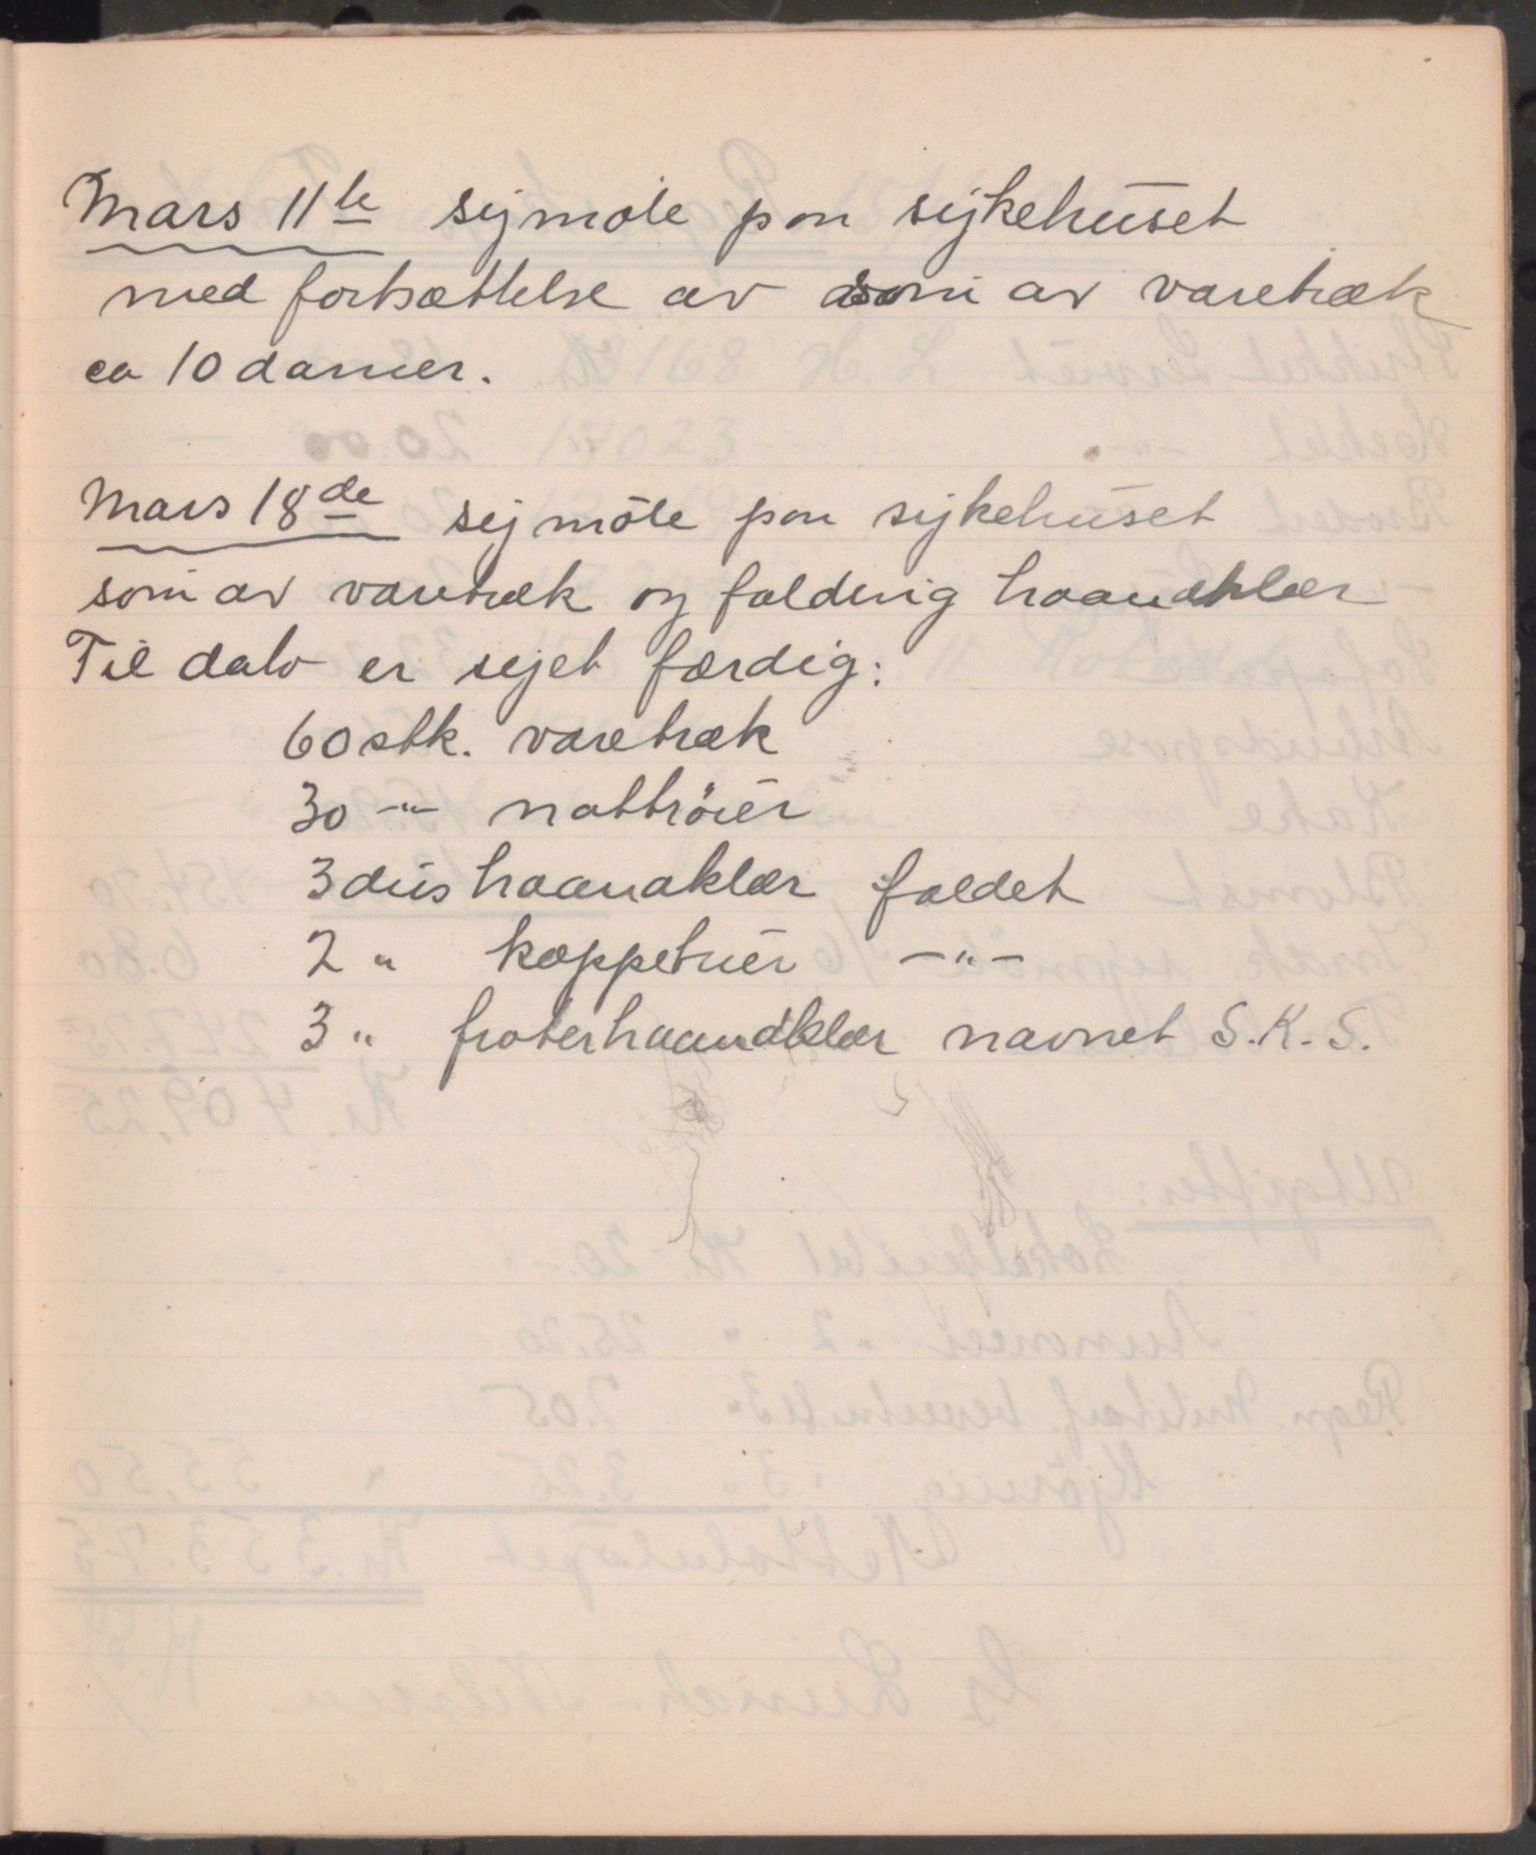 Mars 11te symöte paa sykehuset
med fortsættelse av söm av varetræk
ca 10 damer.
Mars 18de symöte paa sykehuset
söm av varetræk og falding haandklær
Til dato er syet færdig:
60 stk. varetræk
30 -"- nattröier
3 dus haandklær faldet
2 " koppetuer -"-
3 " froterhaandklær navnet S.K.S.